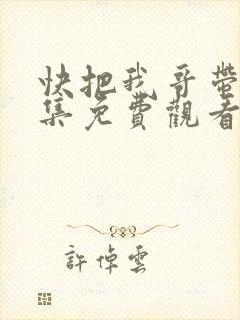 快把我哥帶
集免費觀看
許倬雲